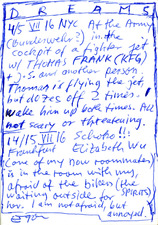 DREAMS
4/5 VII 16 NYC At the Army
(Bundeswehr?) in the
cockpit of a fighter jet
w/ THOMAS FRANK (KFG)
+ J.S. and another person.
Thomas is flying the jet
but dozes off 2 times. I
wake him up both times. All
not scary or threatening.
14/15 VII 16 Schoko!!!
Frankfurt Elizabeth Wu
(one of my now roommates)
is in the room with me,
afraid of the bikers (the
waiting outside for SPIRITS)
her. I am not afraid, but
annoyed.